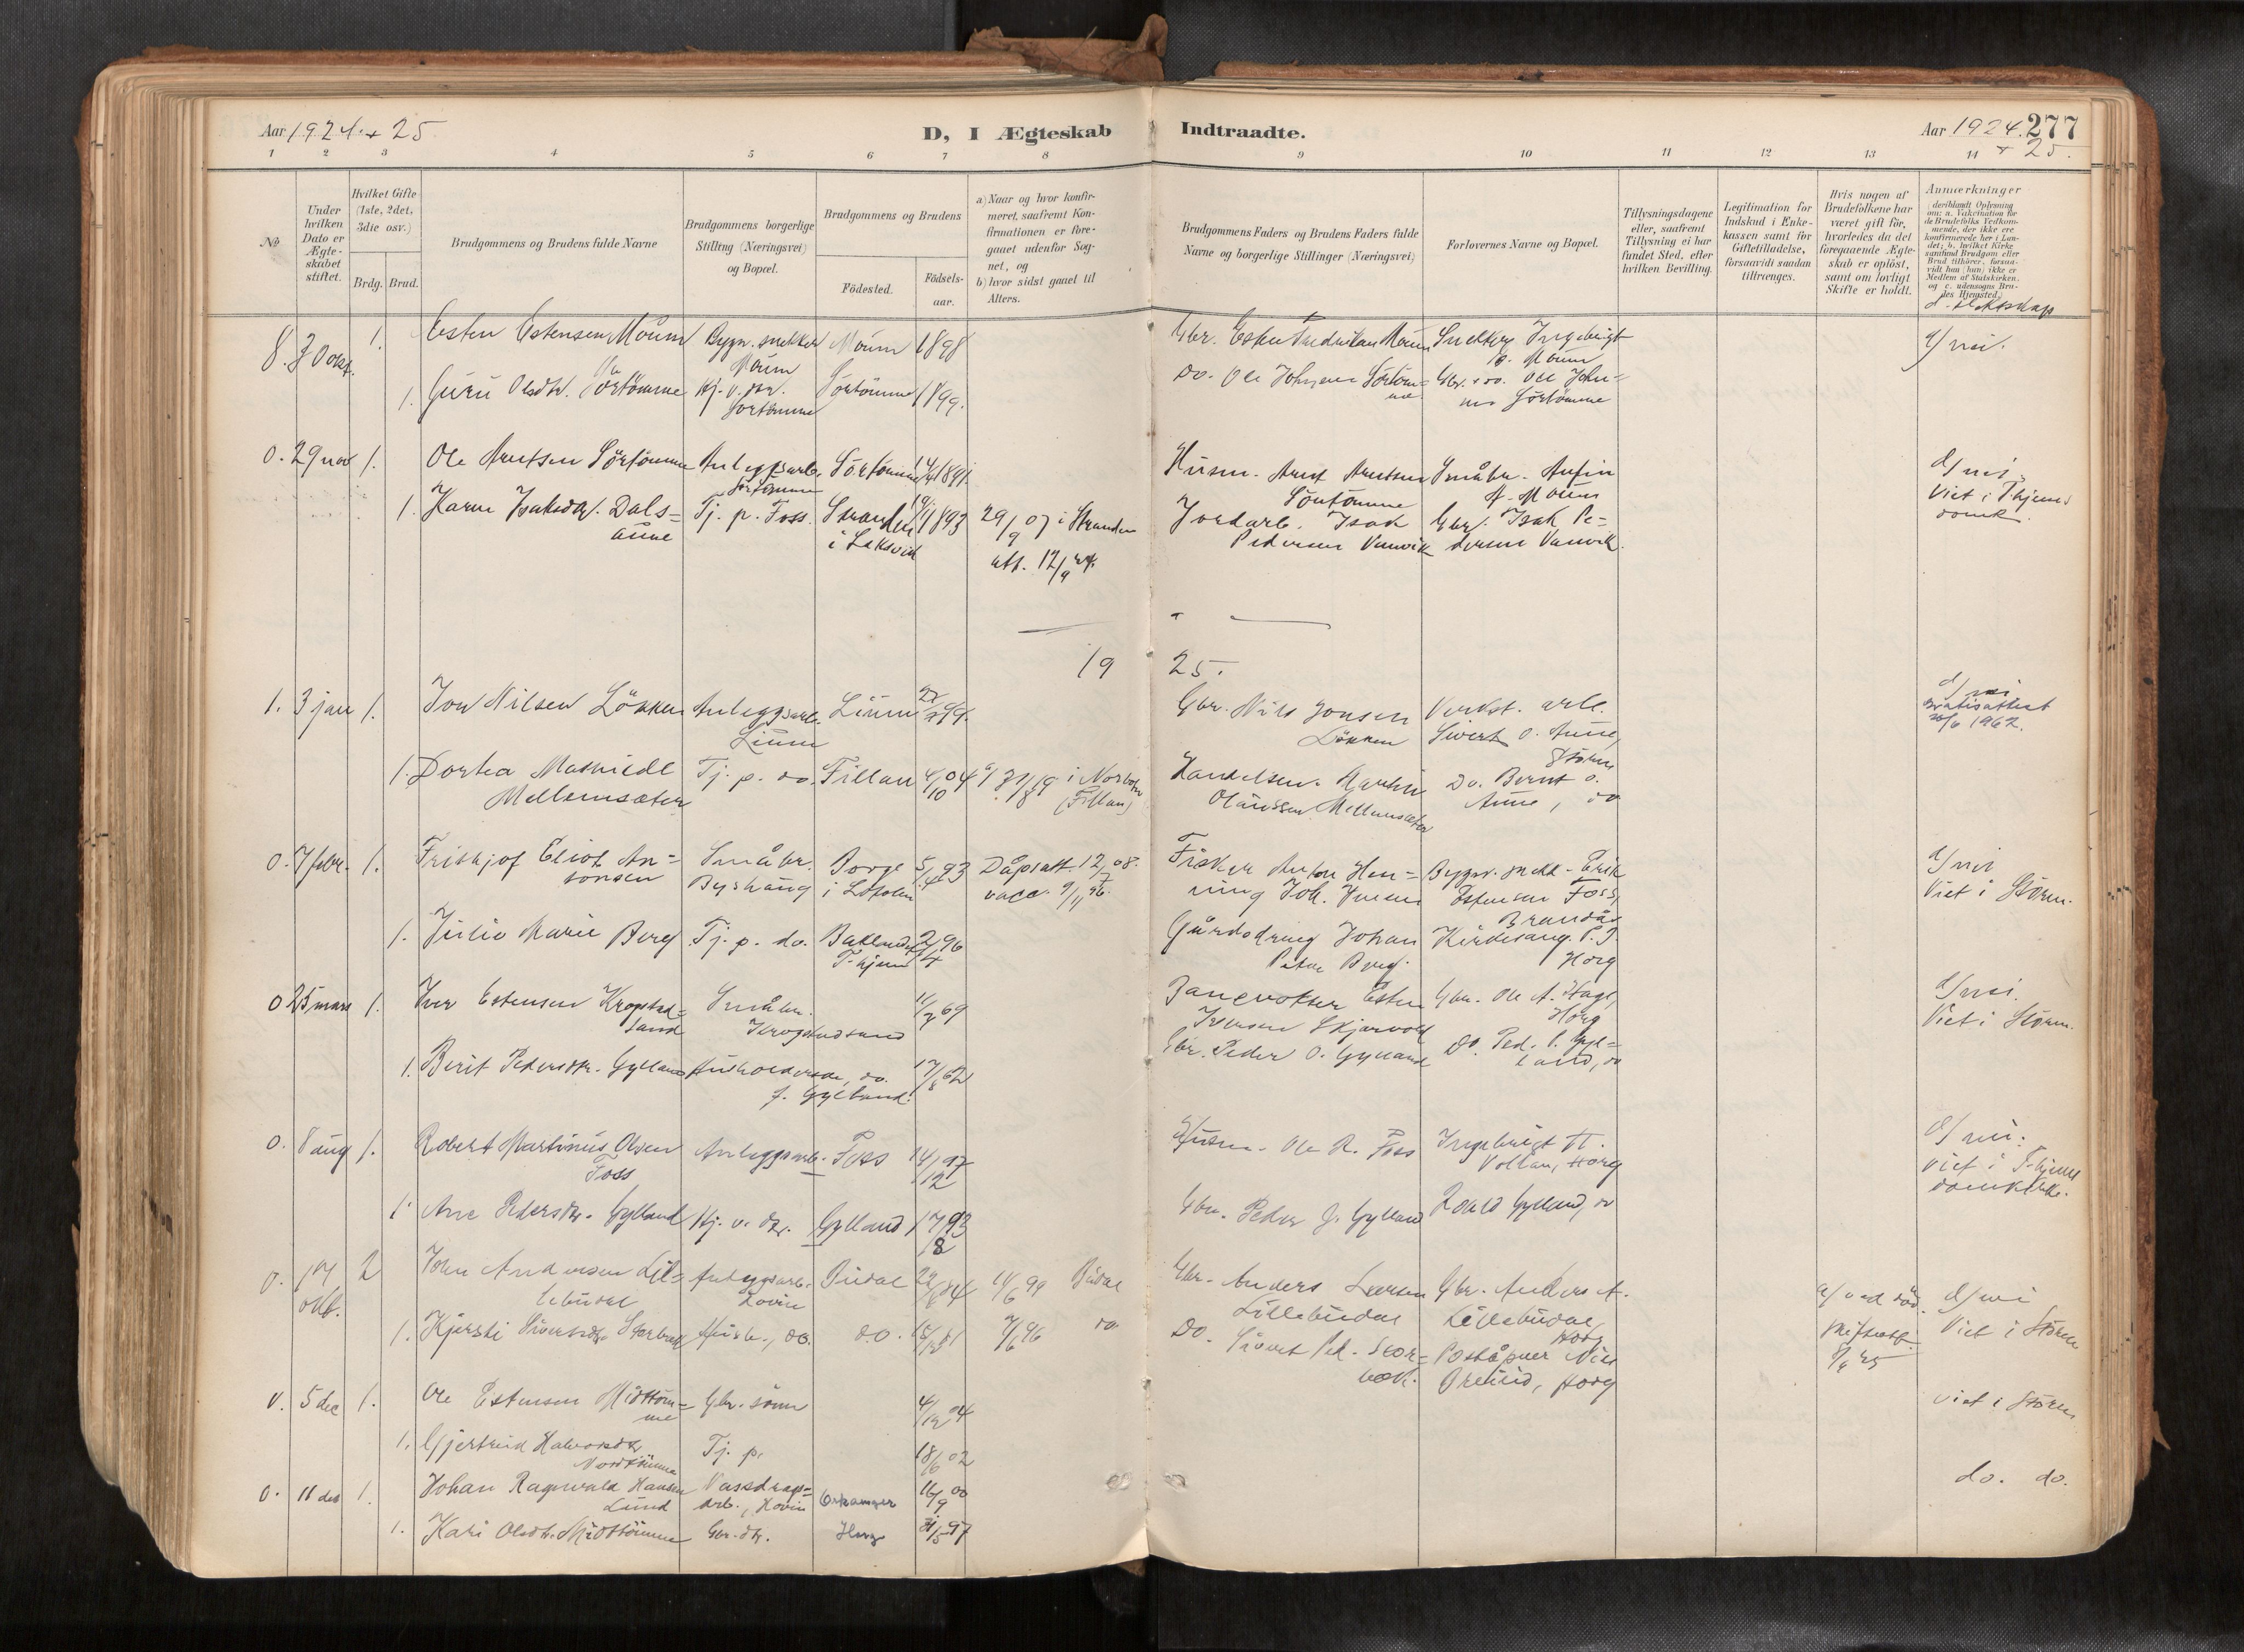 Aar 1924 + 25
D, I Ægteskab
Indtraadte.
Aar 1924. 277
+ 25.
1 2 3 4 5 6 7 8 9 10 11 12 13 14
No
Under hvilken Dato er Ægteskabet stiftet.
Hvilket Gifte (1ste, 2det, 3die osv.)
Brdg. Brud.
Brudgommens og Brudens fulde Navne
Brudgommens borgerlige Stilling (Næringsvei) og Bopæl.
Brudgommens og Brudens
Födested.
Födsels-aar.
a) Naar og hvor konfirmeret, saafremt Konfirmationen er foregaaet udenfor Sognet, og
b) hvor sidst gaaet til Alters.
Brudgommens Faders og Brudens Faders fulde Navne og borgerlige Stillinger (Næringsvei)
Forlovernes Navne og Bopæl.
Tillysningsdagene eller, saafremt Tillysning ei har fundet Sted, efter hvilken Bevilling.
Legitimation for Indskud i Enkekassen samt for Giftetilladelse, forsaavidt saadan tiltrænges.
Hvis nogen af Brudefolkene har været gift før, hvorledes da det foregaaende Ægteskab er oplöst, samt om lovligt Skifte er holdt.
Anmærkninger
(deriblandt Oplysning om: a. Vakcination for de Brudefolks Vedkommende, der ikke ere konfirmerede her i Landet; b. hvilket Kirkesamfund Brudgom eller Brud tilhörer, forsaavidt han (hun) ikke er Medlem af Statskirken, og c. udensogns Brudes Hjemsted.)
d. slektskap
8. 30 okt. 1. Esten Estensen Moum Bygn. snekker Moum 1898
Moum
Gbr. Esten Fredriksen Moum Snekker Ingebrigt
Moum
d/ nei.
1. Guru Olsdtr. Sörtömme Hj. v. dtr. Sörtömme 1899.
Sortömme
Do. Ole Johnsen Sörtöm= Gbr. Ole John=
me Sörtömme
0. 29 nov 1. Ole Arntsen Sörtömme Anleggsarb. Sörtömme 1891
Sörtömme
Husm. Arnt Arntsen Småbr. Anfin
Sörtömme A. Moum
d/ nei
Viet i T.hjems
domk.
1. Karen Isaksdtr. Dals= Tj. p. Foss. Stranden 1893 29/9 07 i Stranden
aune i Leksvik att. 12/9 24.
Jordarb. Isak Gbr. Isak Pe=
Pedersen Vanvik dersen Vanvik.
19 25.
1. 3 jan 1. Jon Nilsen Løkken Anleggsarb. Lium 99.
Lium
Gbr. Nils Jonsen Verkst. arb.
Løkken Sivert O. Aune,
Støren
d/ nei
Gratisattest
1962.
1. Dortea Mathilde Tj. p. do. Fillan 4/10 04 31/8 19 i Nordbotn
Mellemsæter (Fillan)
Handelsm. Martin Do. Bernt O.
Olaussen Mellemsæter Aune, do
0. 7 febr. 1. Frithjof Eliot An= Småbr. Borge 5/4 93 Dåpsatt. 12/7 08.
tonsen Byshaug i Lofoten vacc. 9/11 96.
Fisker Anton Hen= Bygn. snekk. Erik
ning Joh. Jensen Estensen Foss,
d/ nei
Viet i Støren.
1. Julie Marie Berg Tj. p. do. Baklandet 2/4 96
T.hjem
Gårdsdreng Johan Kirkesang. P. J.
Peter Berg. Horg
0 25 mars 1. Iver Estensen Krogstad= Småbr. 11/7 69
sand Krogstadsand
Banevokter Esten Gbr. Ole A. Hage,
Iversen Skjervold Horg
d/ nei.
Viet i Støren.
1. Berit Pedersdtr. Gylland Husholderske, do. 17/8 62
f. Gylland.
Gbr. Peder O. Gylland Do. Ped. P. Gyl=
land, do
0. 8 aug 1. Robert Martinus Olsen Anleggsarb. Foss 14/12 97
Foss
Husm. Ole R. Foss Ingebrigt H.
Vollan, Horg
d/ nei.
Viet i T.hjems
domkirke.
1. Ane Pedersdtr. Gylland Hj. v. dtr. Gylland 17/8 93
Gbr. Peder J. Gylland Roald Gylland, do
0. 17 okt. 2 John Andersen Lil= Anleggsarb. Budal 84 11/6 99 Budal
lebudal Hovin
Gbr. Anders Larsen Gbr. Anders A.
Lillebudal Lillebudal,
Horg
a/ ved död.
skifteatt.
25
d/ nei
Viet i Støren
1. Kjersti Siversdtr. Storbæk Hush., do. do. 81 7/6 96 do
Do. Sivert Ped. Stor= Poståpner Nils
bæk. Øreeid, Horg
0. 5 dec 1. Ole Estensen Midttöm= Gbr. sönn 4/12 04
me
Viet i Støren
1. Gjertrud Halvorsdtr Tj. p. 18/6 02
Nordtömme
0. 11 des 1. Johan Ragnvald Hansen Vassdrags= Orkanger 16/9 00
Lund arb., Hovin
do. do.
1. Kari Olsdtr. Midttömme Gbr. dtr. Horg 31/5 97